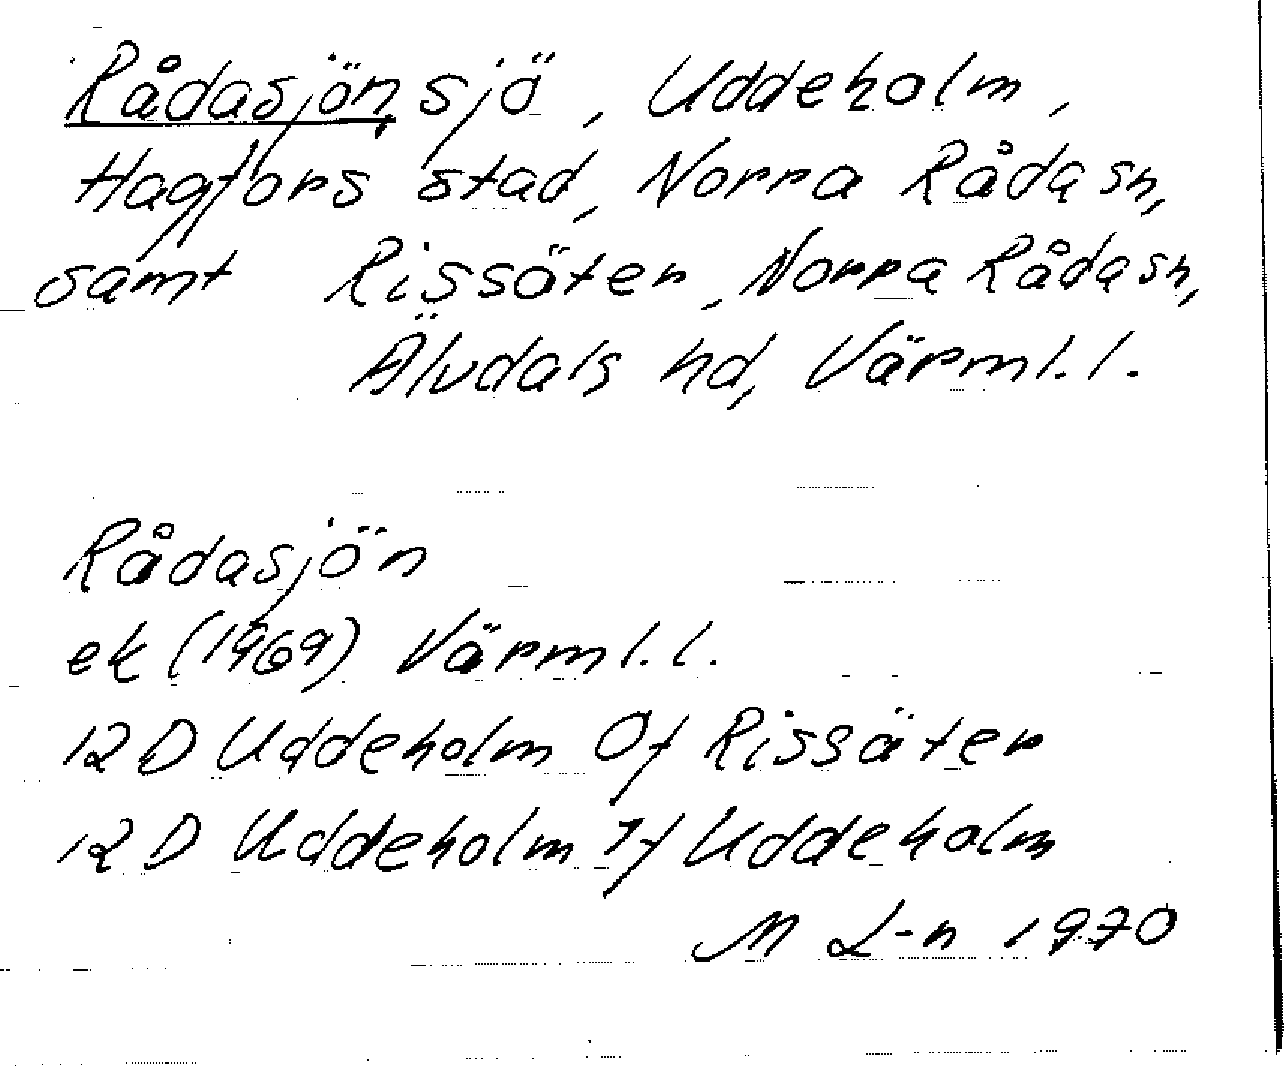 Rådasjön, sjö, Uddeholm,
Hagfors stad, Norra Råda sn,
samt Rissäter, Norra Råda sn,
Älvdals hd, Värml. l.
Rådasjön
ek (1969) Värml. l.
12 D Uddeholm 0f Rissäter
12 D Uddeholm 1f Uddeholm
M L-n 1970